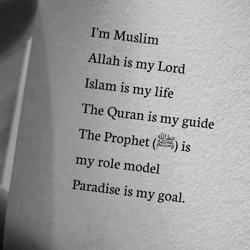 I'm Muslim
Allah is my Lord
Islam is my life
The Quran is my guide
The Prophet (ﷺ) is
my role model
Paradise is my goal.